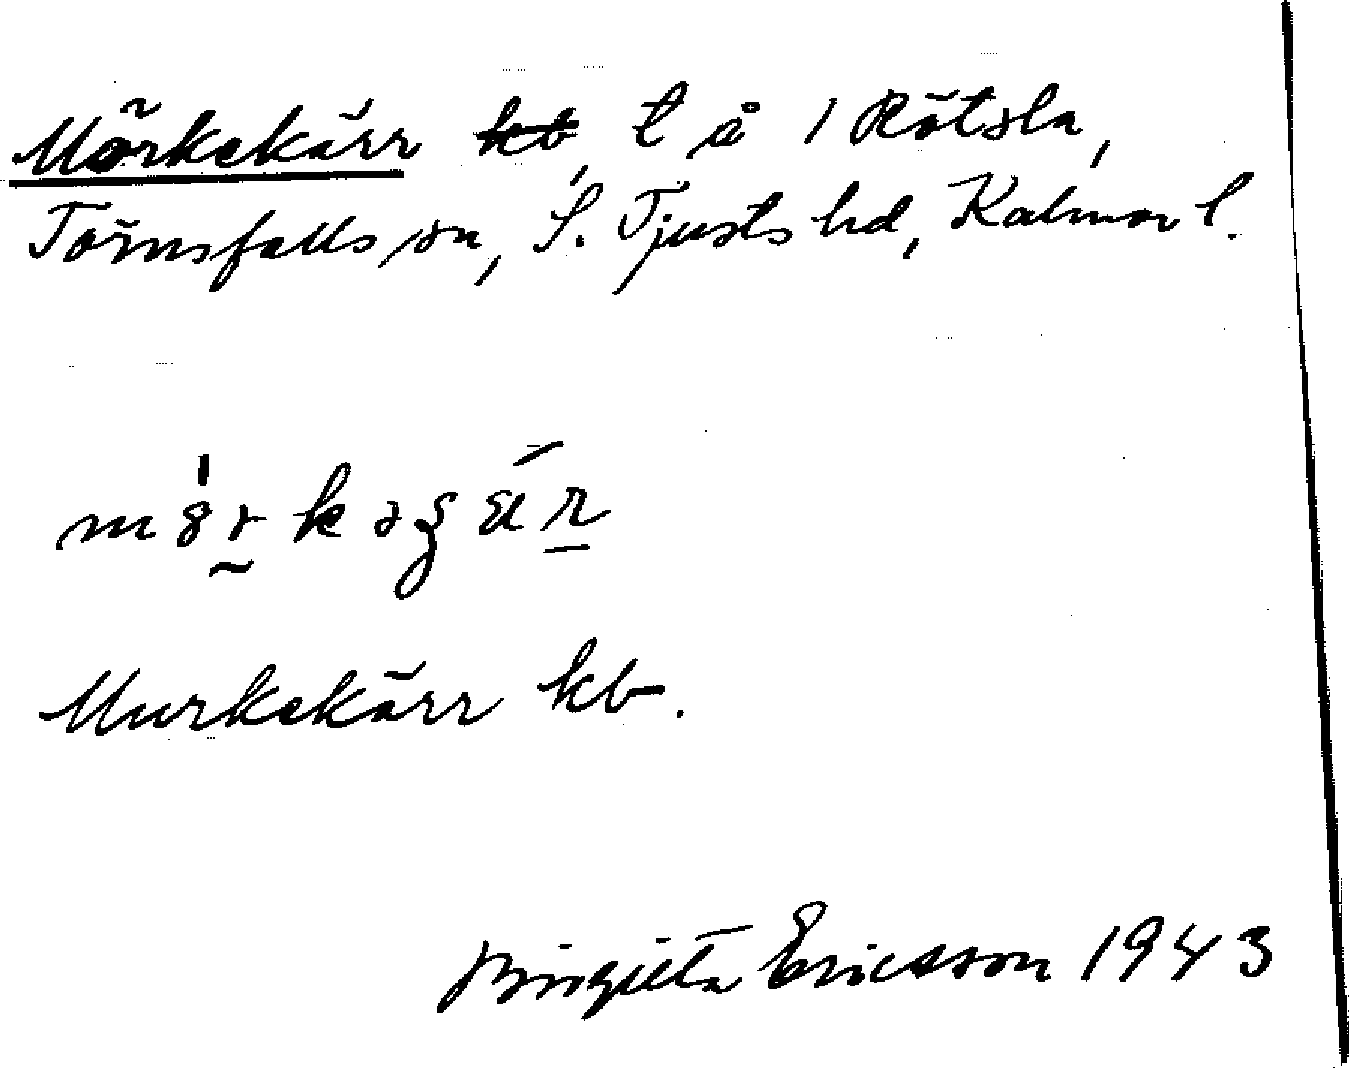 Mörkekärr kb, t å / Rötsla,
Törnsfalls sn, S. Tjusts hd, Kalmar l.
Murkekärr kb.
Birgitta Ericsson 1943